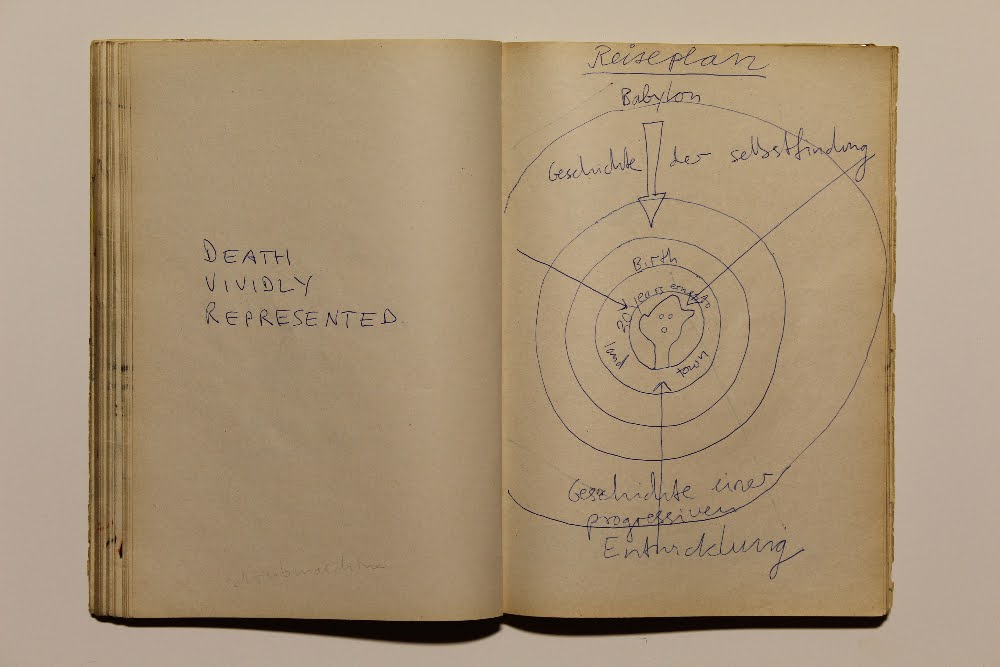 DEATH
VIVIDLY
REPRESENTED
Reiseplan
Babylon
Geschichte der selbstfindung
Birth
30 years
land
town
Geschichte einer
progressiven
Entwicklung